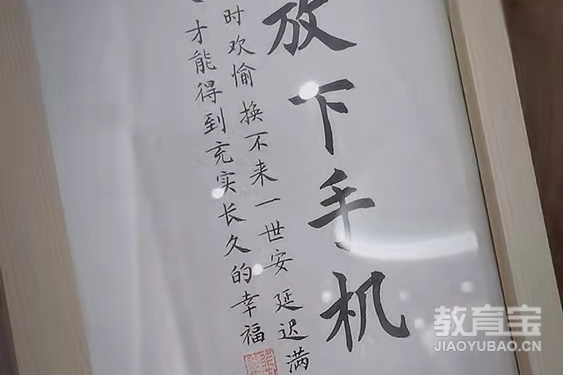 放下手机
时欢愉换不来一世安延迟满
才能得到充实长久的幸福
教育宝
JIAOYUBAO.CN